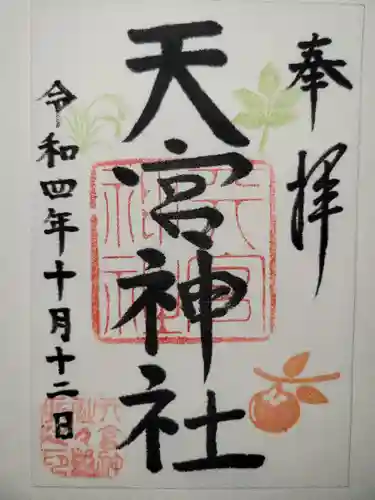 奉拝
天宮神社
令和四年十月十二日